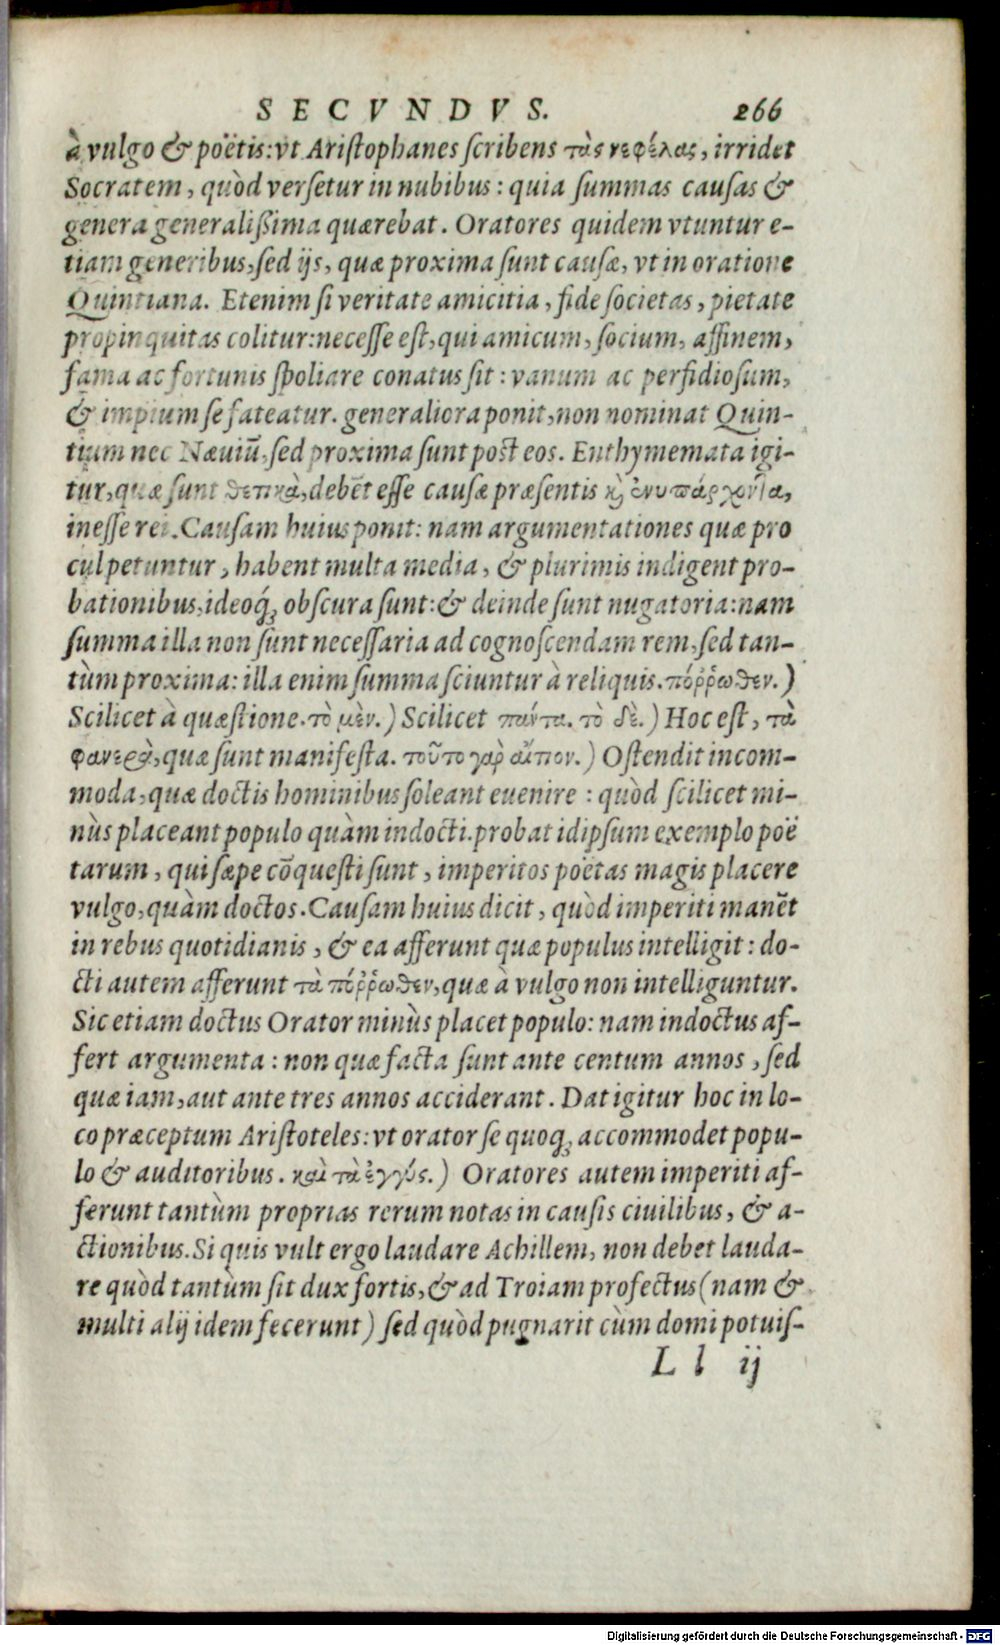 SECVNDVS. 266
à vulgo & poëtis: vt Aristophanes scribens τὰς νεφέλας, irridet
Socratem, quòd versetur in nubibus: quia summas causas &
genera generalißima quærebat. Oratores quidem vtuntur e-
tiam generibus, sed ijs, quæ proxima sunt causæ, vt in oratione
Quintiana. Etenim si veritate amicitia, fide societas, pietate
propinquitas colitur: necesse est, qui amicum, socium, affinem,
fama ac fortunis spoliare conatus sit: vanum ac perfidiosum,
& impium se fateatur. generaliora ponit, non nominat Quin-
tium nec Næuiū, sed proxima sunt post eos. Enthymemata igi-
tur, quæ sunt θετικὰ, debēt esse causæ præsentis κỳ ἐνυπάρχοντα,
inesse rei. Causam huius ponit: nam argumentationes quæ pro
cul petuntur, habent multa media, & plurimis indigent pro-
bationibus, ideoq́; obscura sunt: & deinde sunt nugatoria: nam
summa illa non sunt necessaria ad cognoscendam rem, sed tan-
tùm proxima: illa enim summa sciuntur à reliquis. πόῤῥωθεν.)
Scilicet à quæstione. τὸ μὲν.) Scilicet πάντα. τὸ δὲ.) Hoc est, τὰ
φανερὰ, quæ sunt manifesta. τοῦτο γὰρ αἴτιον.) Ostendit incom-
moda, quæ doctis hominibus soleant euenire: quòd scilicet mi-
nùs placeant populo quàm indocti. probat id ipsum exemplo poë
tarum, qui sæpe cōquesti sunt, imperitos poëtas magis placere
vulgo, quàm doctos. Causam huius dicit, quòd imperiti manēt
in rebus quotidianis, & ea afferunt quæ populus intelligit: do-
cti autem afferunt τὰ πόῤῥωθεν, quæ à vulgo non intelliguntur.
Sic etiam doctus Orator minùs placet populo: nam indoctus af-
fert argumenta: non quæ facta sunt ante centum annos, sed
quæ iam, aut ante tres annos acciderant. Dat igitur hoc in lo-
co præceptum Aristoteles: vt orator se quoq; accommodet popu-
lo & auditoribus. καὶ τὰ ἐγγύς.) Oratores autem imperiti af-
ferunt tantùm proprias rerum notas in causis ciuilibus, & a-
ctionibus. Si quis vult ergo laudare Achillem, non debet lauda-
re quòd tantùm sit dux fortis, & ad Troiam profectus (nam &
multi alij idem fecerunt) sed quòd pugnarit cùm domi potuis-
Ll ij
Digitalisierung gefördert durch die Deutsche Forschungsgemeinschaft - DFG